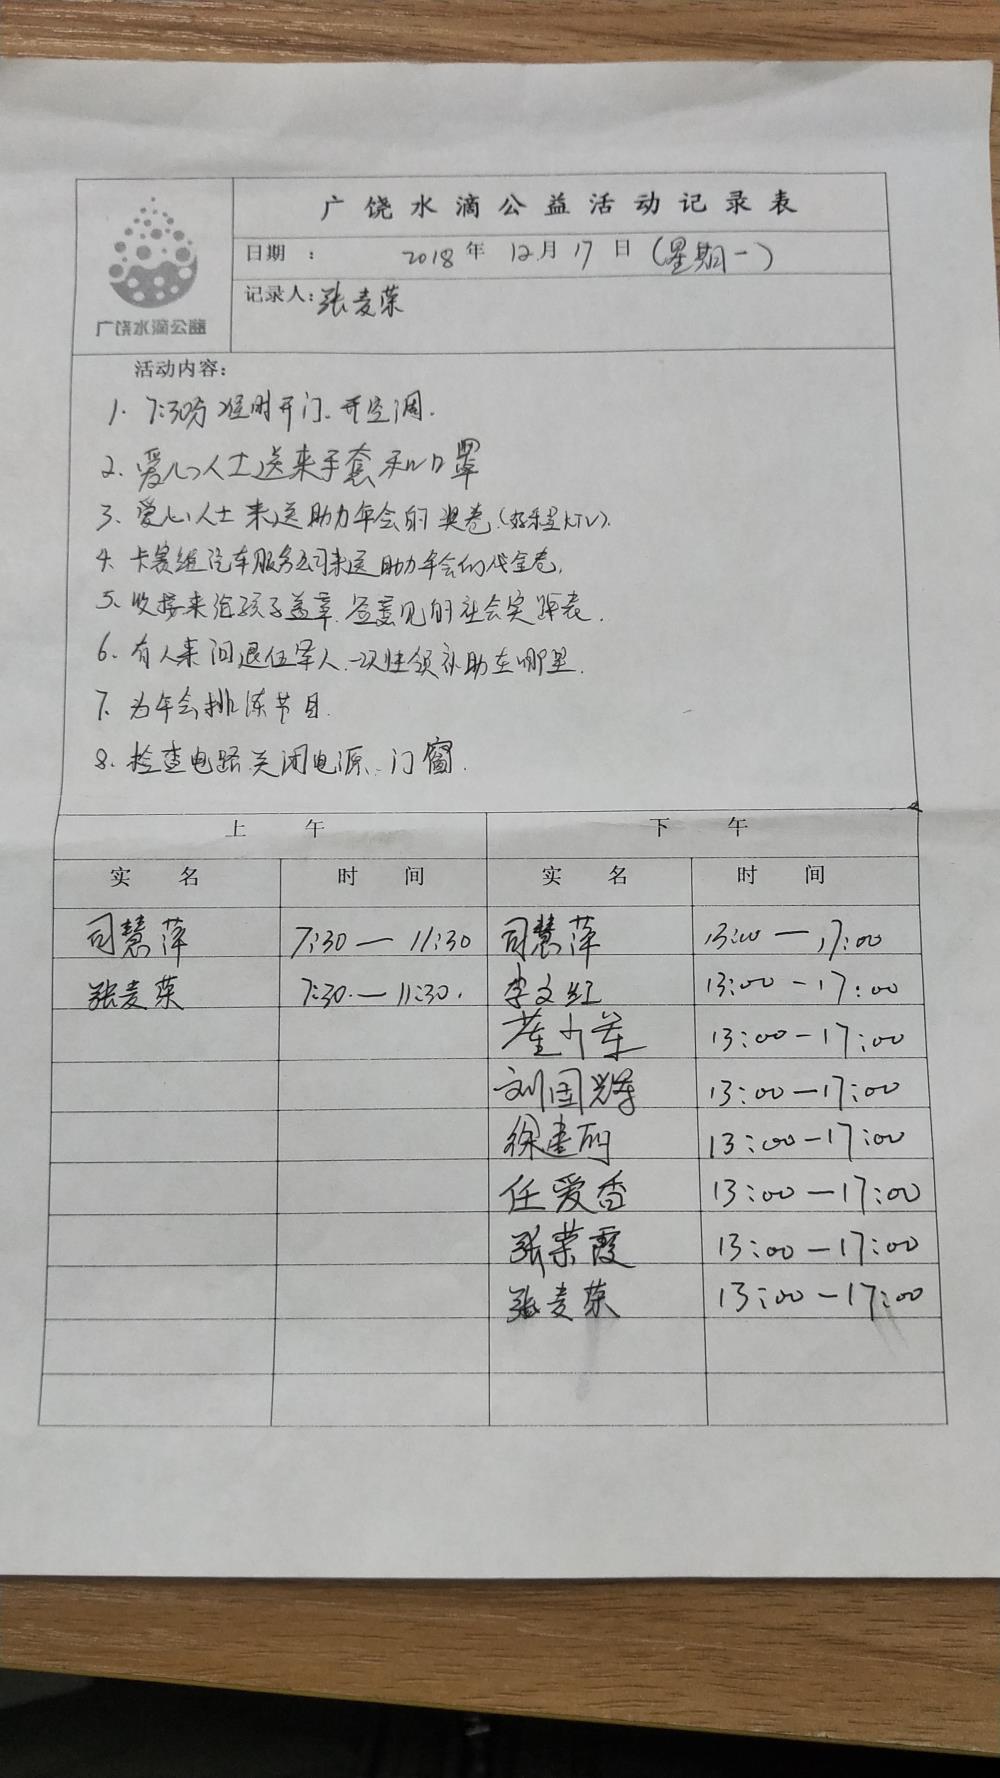 广饶水滴公益活动记录表
广饶水滴公益
日期 : 2018年 12月 17日 (星期一)
记录人: 张麦荣
活动内容:
1. 7:30分准时开门、开空调.
2. 爱心人士送来手套和口罩
3. 爱心人士来送助力年会的奖卷.(好乐星KTV).
4. 卡赛维汽车服务公司来送助力年会的代金卷.
5. 收接来给孩子盖章.签意见的社会实践表.
6. 有人来问退伍军人.一次性领补助在哪里.
7. 为年会排练节目.
8. 检查电路.关闭电源、门窗.
上 午 下 午
实 名 时 间 实 名 时 间
司慧萍 7:30—11:30 司慧萍 13:00—17:00
张麦荣 7:30.—11:30. 李文红 13:00-17:00
13:00-17:00
刘国辉 13:00—17:00
徐建丽 13:00-17:00
任爱香 13:00—17:00
张荣霞 13:00—17:00
张麦荣 13:00-17:00